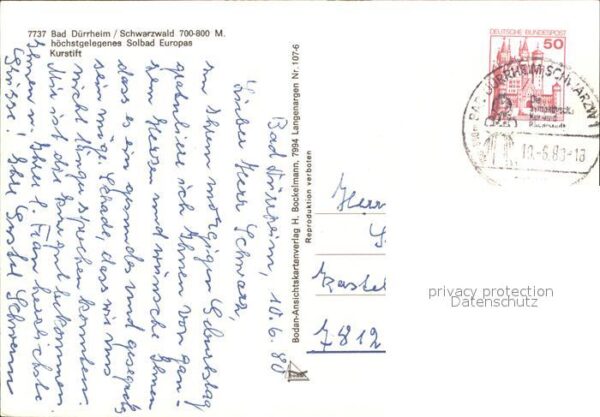 7737 Bad Dürrheim / Schwarzwald 700-800 M.
höchstgelegenes Solbad Europas
Kurstift
Bad Dürrheim, 10.6.80
Lieber Herr Schwarz,
zu Ihrem morgigen Geburtstag
gratuliere ich Ihnen von gan-
zem Herzen und wünsche Ihnen
dass es ein gesundes und gesegnetes
sein möge. Schade, dass wir uns
nicht länger sprechen konnten.
Mir ist die Kur gut bekommen.
Ihnen u. Ihrer l. Frau herzlichste
Grüsse! Ihre
Bodan-Ansichtskartenverlag H. Bockelmann, 7994 Langenargen Nr. 107-6
Reproduktion verboten
DEUTSCHE BUNDESPOST
50
BAD DÜRRHEIM SCHWARZW 1
Die
10.-6.80-18
Herr
S
Kastel
7812
privacy protection
Datenschutz